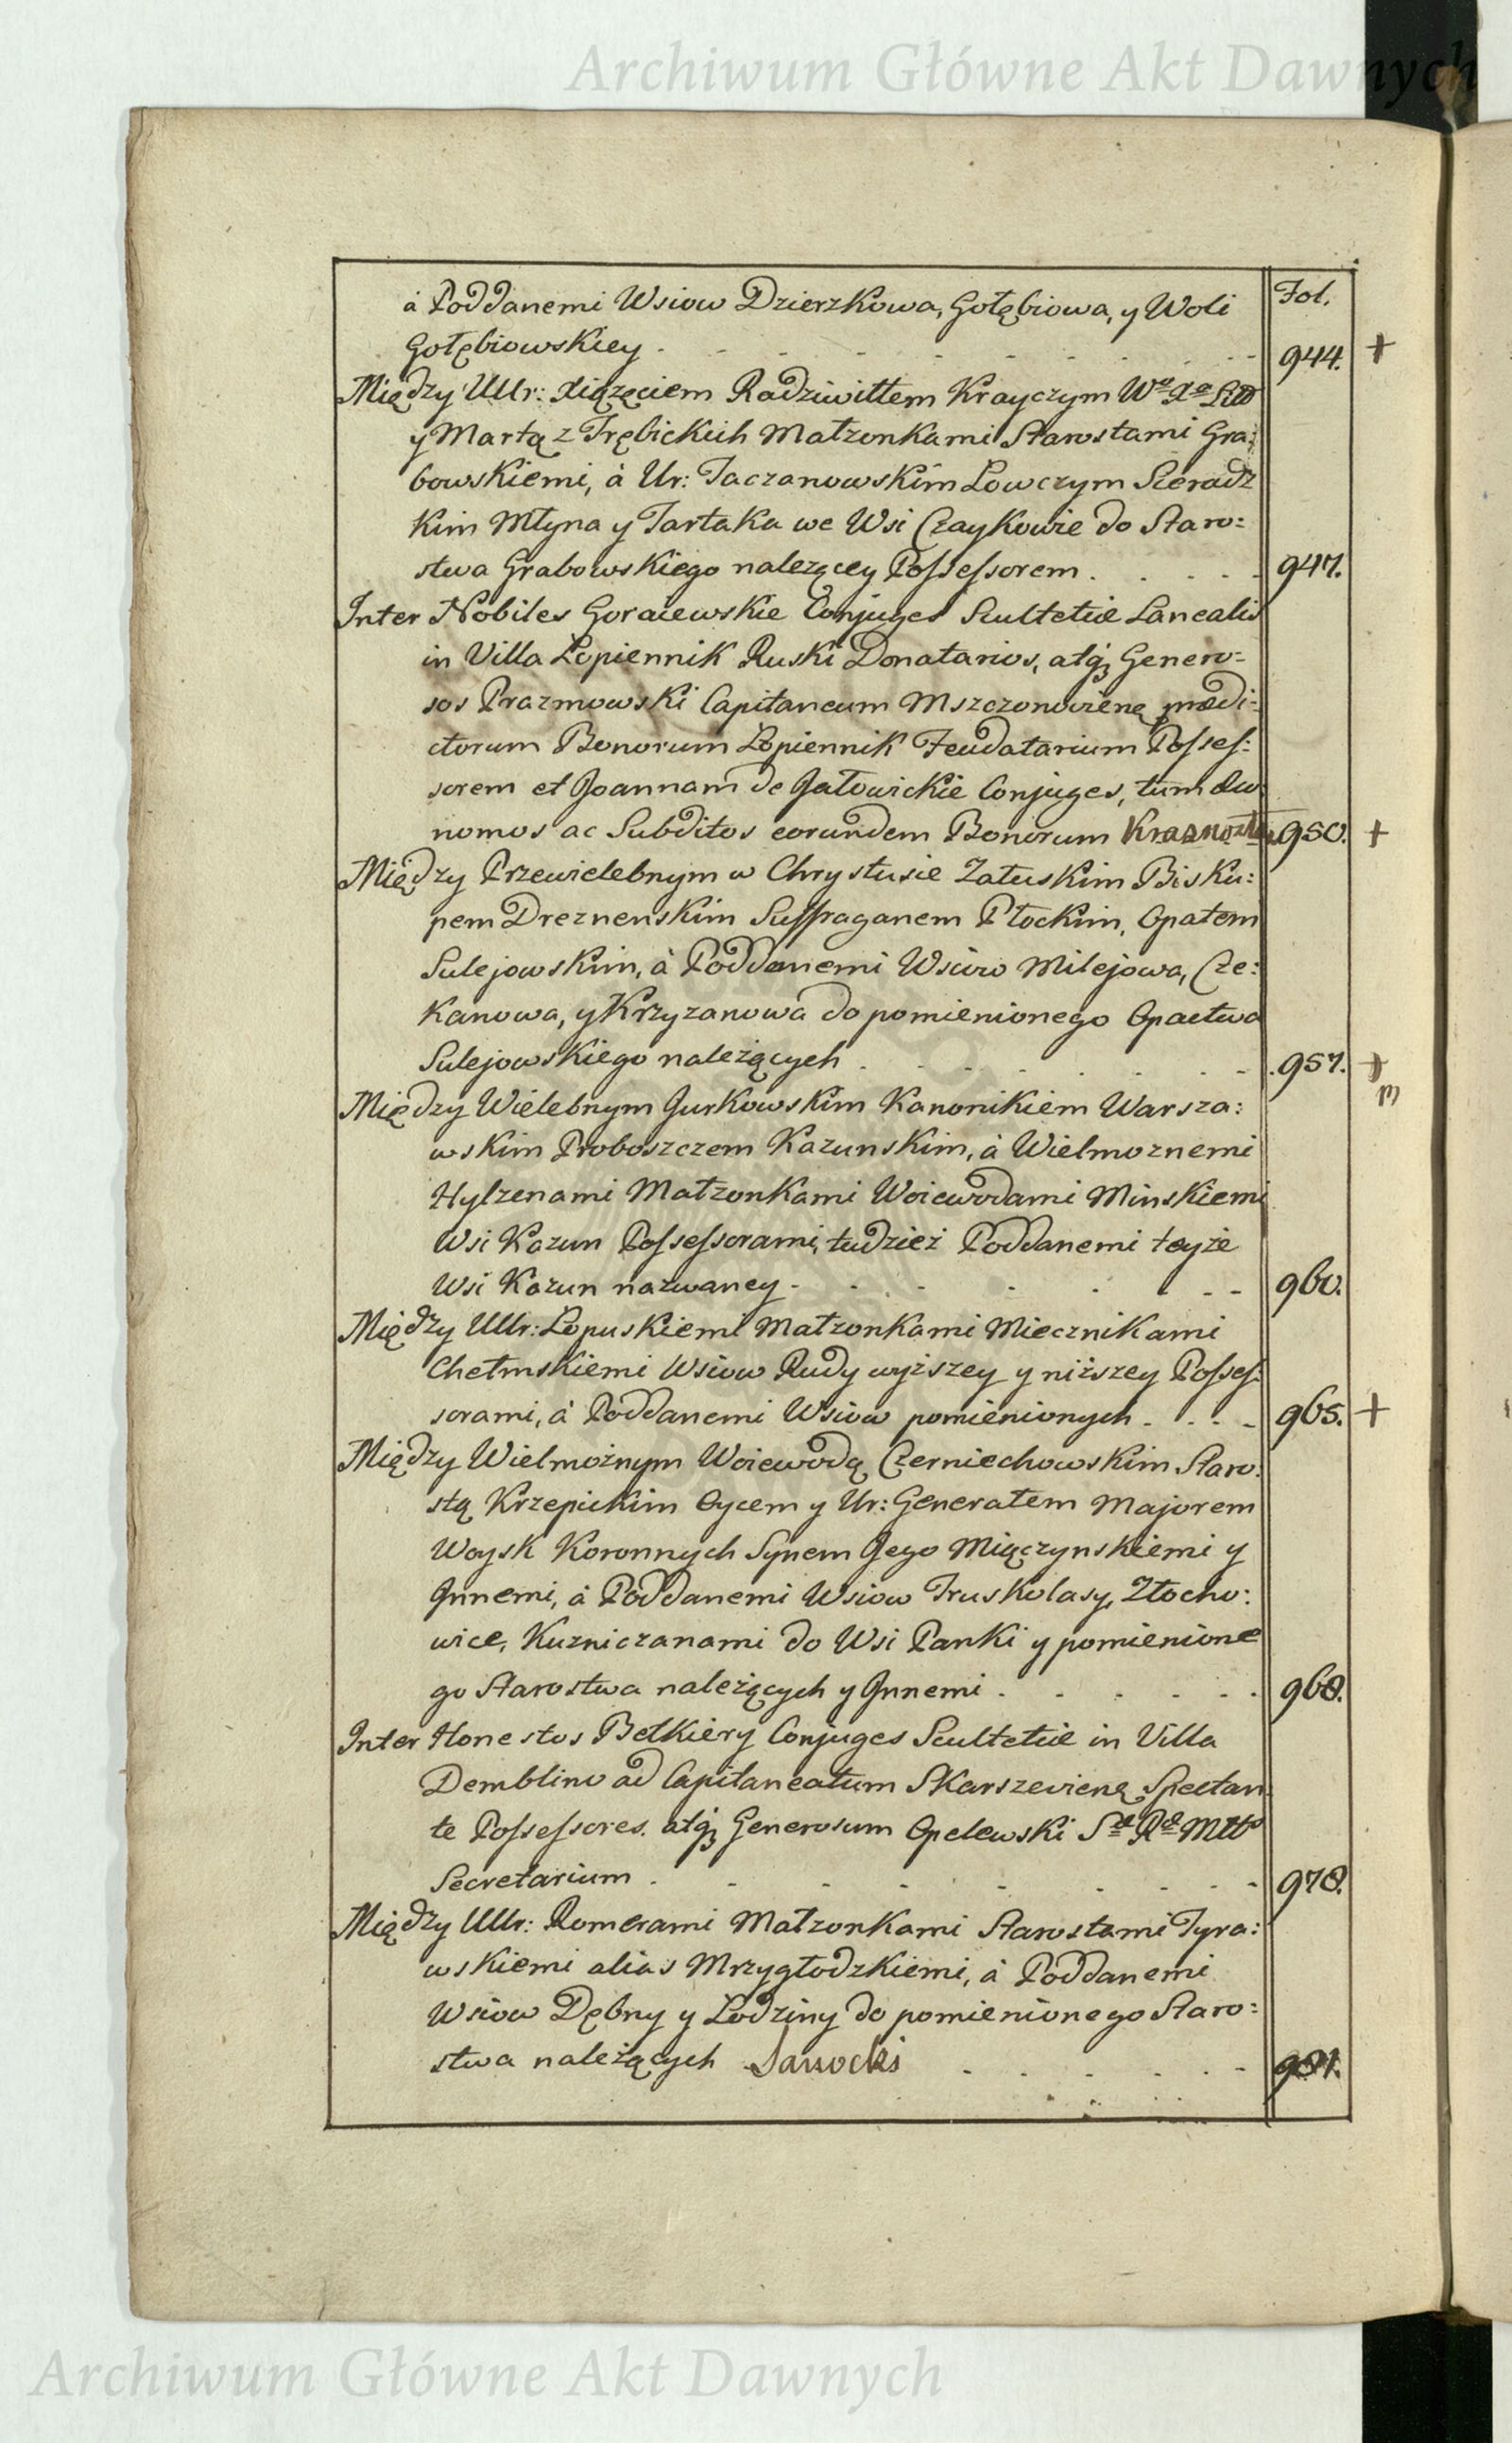 Archiwum Główne Akt Dawnych
Fol.
à Poddanemi Wsiow Dzierzkowa, Gołębiowa, y Woli
Gołębiowskiey . 944. +
Między UUr: Xiążęciem Radziwiłłem Krayczym Wo Xa Litt
y Martą z Trębickich Małżonkami Starostami Gra:
bowskiemi, à Ur: Taczanowskim Łowczym Sieradz
kim Młyna y Tartaka we Wsi Czaykowie do Staro:
stwa Grabowskiego należącey Possessorem . 947.
Inter Nobiles Goraiewskie Conjuges Scultetiæ Lanealis
in Villa Łopiennik Ruski Donatarios, atq; Genero=
sos Prazmowski Capitaneum Mszczonovienę prædi=
ctorum Bonorum Łopiennik Feudatarium Posses:
sorem et Joannam de Gatowickie Conjuges, tum
nomos ac Subditos eorundem Bonorum 950. +
Między Przewielebnym w Chrystusie Załuskim Bisku:
pem Dreznenskim Suffraganem Płockim, Opatem
Sulejowskim, à Poddanemi Wsiow Milejowa, Cze:
kanowa, y Krzyzanowa do pomienionego Opactwa
Sulejowskiego należących . 957. +
Między Wielebnym Gurkowskim Kanonikiem Warsza:
wskim Proboszczem Kazunskim, à Wielmoznemi
Hylzenami Małzonkami Woiewodami Minskiemi
Wsi Kazun Possessorami, tudzież Poddanemi teyże
Wsi Kazun nazwaney - 960.
Między UUr: Łopuskiemi Małzonkami Miecznikami
Chełmskiemi Wsiow Rudy wyższey y niższey Posses:
sorami, à Poddanemi Wsiow pomienionych . 965. +
Między Wielmożnym Woiewodą Czerniechowskim Staro:
stą Krzepickim Oycem y Ur: Generałem Majorem
Woysk Koronnych Synem Jego Miączynskiemi y
Jnnemi, à Poddanemi Wsiow Truskolasy, Złocho:
wice, Kuzniczanami do Wsi Panki y pomienione
go Starostwa należących y Jnnemi . 968.
Inter Honestos Belkiery Conjuges Scultetiæ in Villa
Demblino ad Capitaneatum Skarszevienę Spectan
te Possessores. atq; Generosum Opelewski Sæ Ræ Mttis
Secretarium . 978.
Między UUr: Romerami Małzonkami Starostami Tyra:
wskiemi alias Mrzygłodzkiemi, à Poddanemi
Wsiow Dębny y Łodziny do pomienionego Staro:
stwa należących Sanocki 981.
Archiwum Główne Akt Dawnych